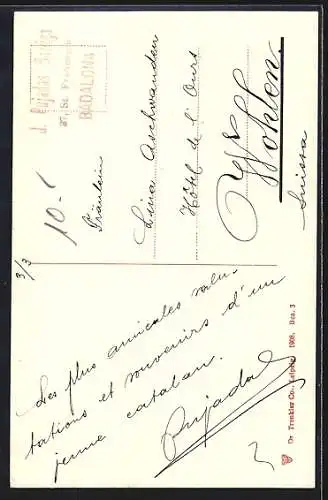 J. Pujadas
BADALONA
10-1
Fräulein
Lina Aschwanden
Hôtel de l'Ours
Wohlen.
Suissa
3/3
Les plus amicales salu-
tations et souvenirs d'un
jeune catalan.
Pujadas
Dr Trenkler Co., Leipzig 1908. Dec. 3